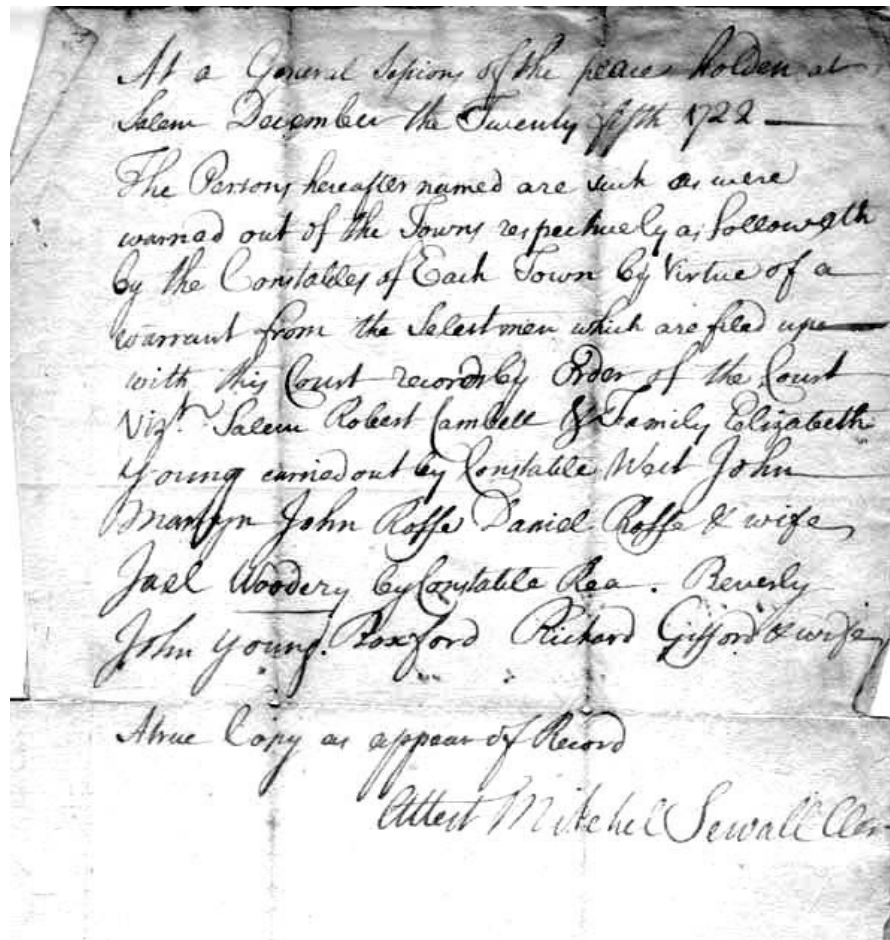 At a General Sessions of the peace holden at
Salem December the Twenty fifth 1722
The Persons hereafter named are such as were
warned out of the Towns respectively as followeth
by the Constables of Each Town by Virtue of a
warrant from the Selectmen which are filed up
with this Court records by Order of the Court
Vizt. Salem Robert Cambell & Family Elizabeth
Young carried out by Constable West John
Martyn John Rosse Daniel Rosse & wife
Jael Woodery by Constable Rea. Beverly
John Young. Boxford Richard Gifford & wife
A true Copy as appear of Record
Attest Mitchel Sewall Cler